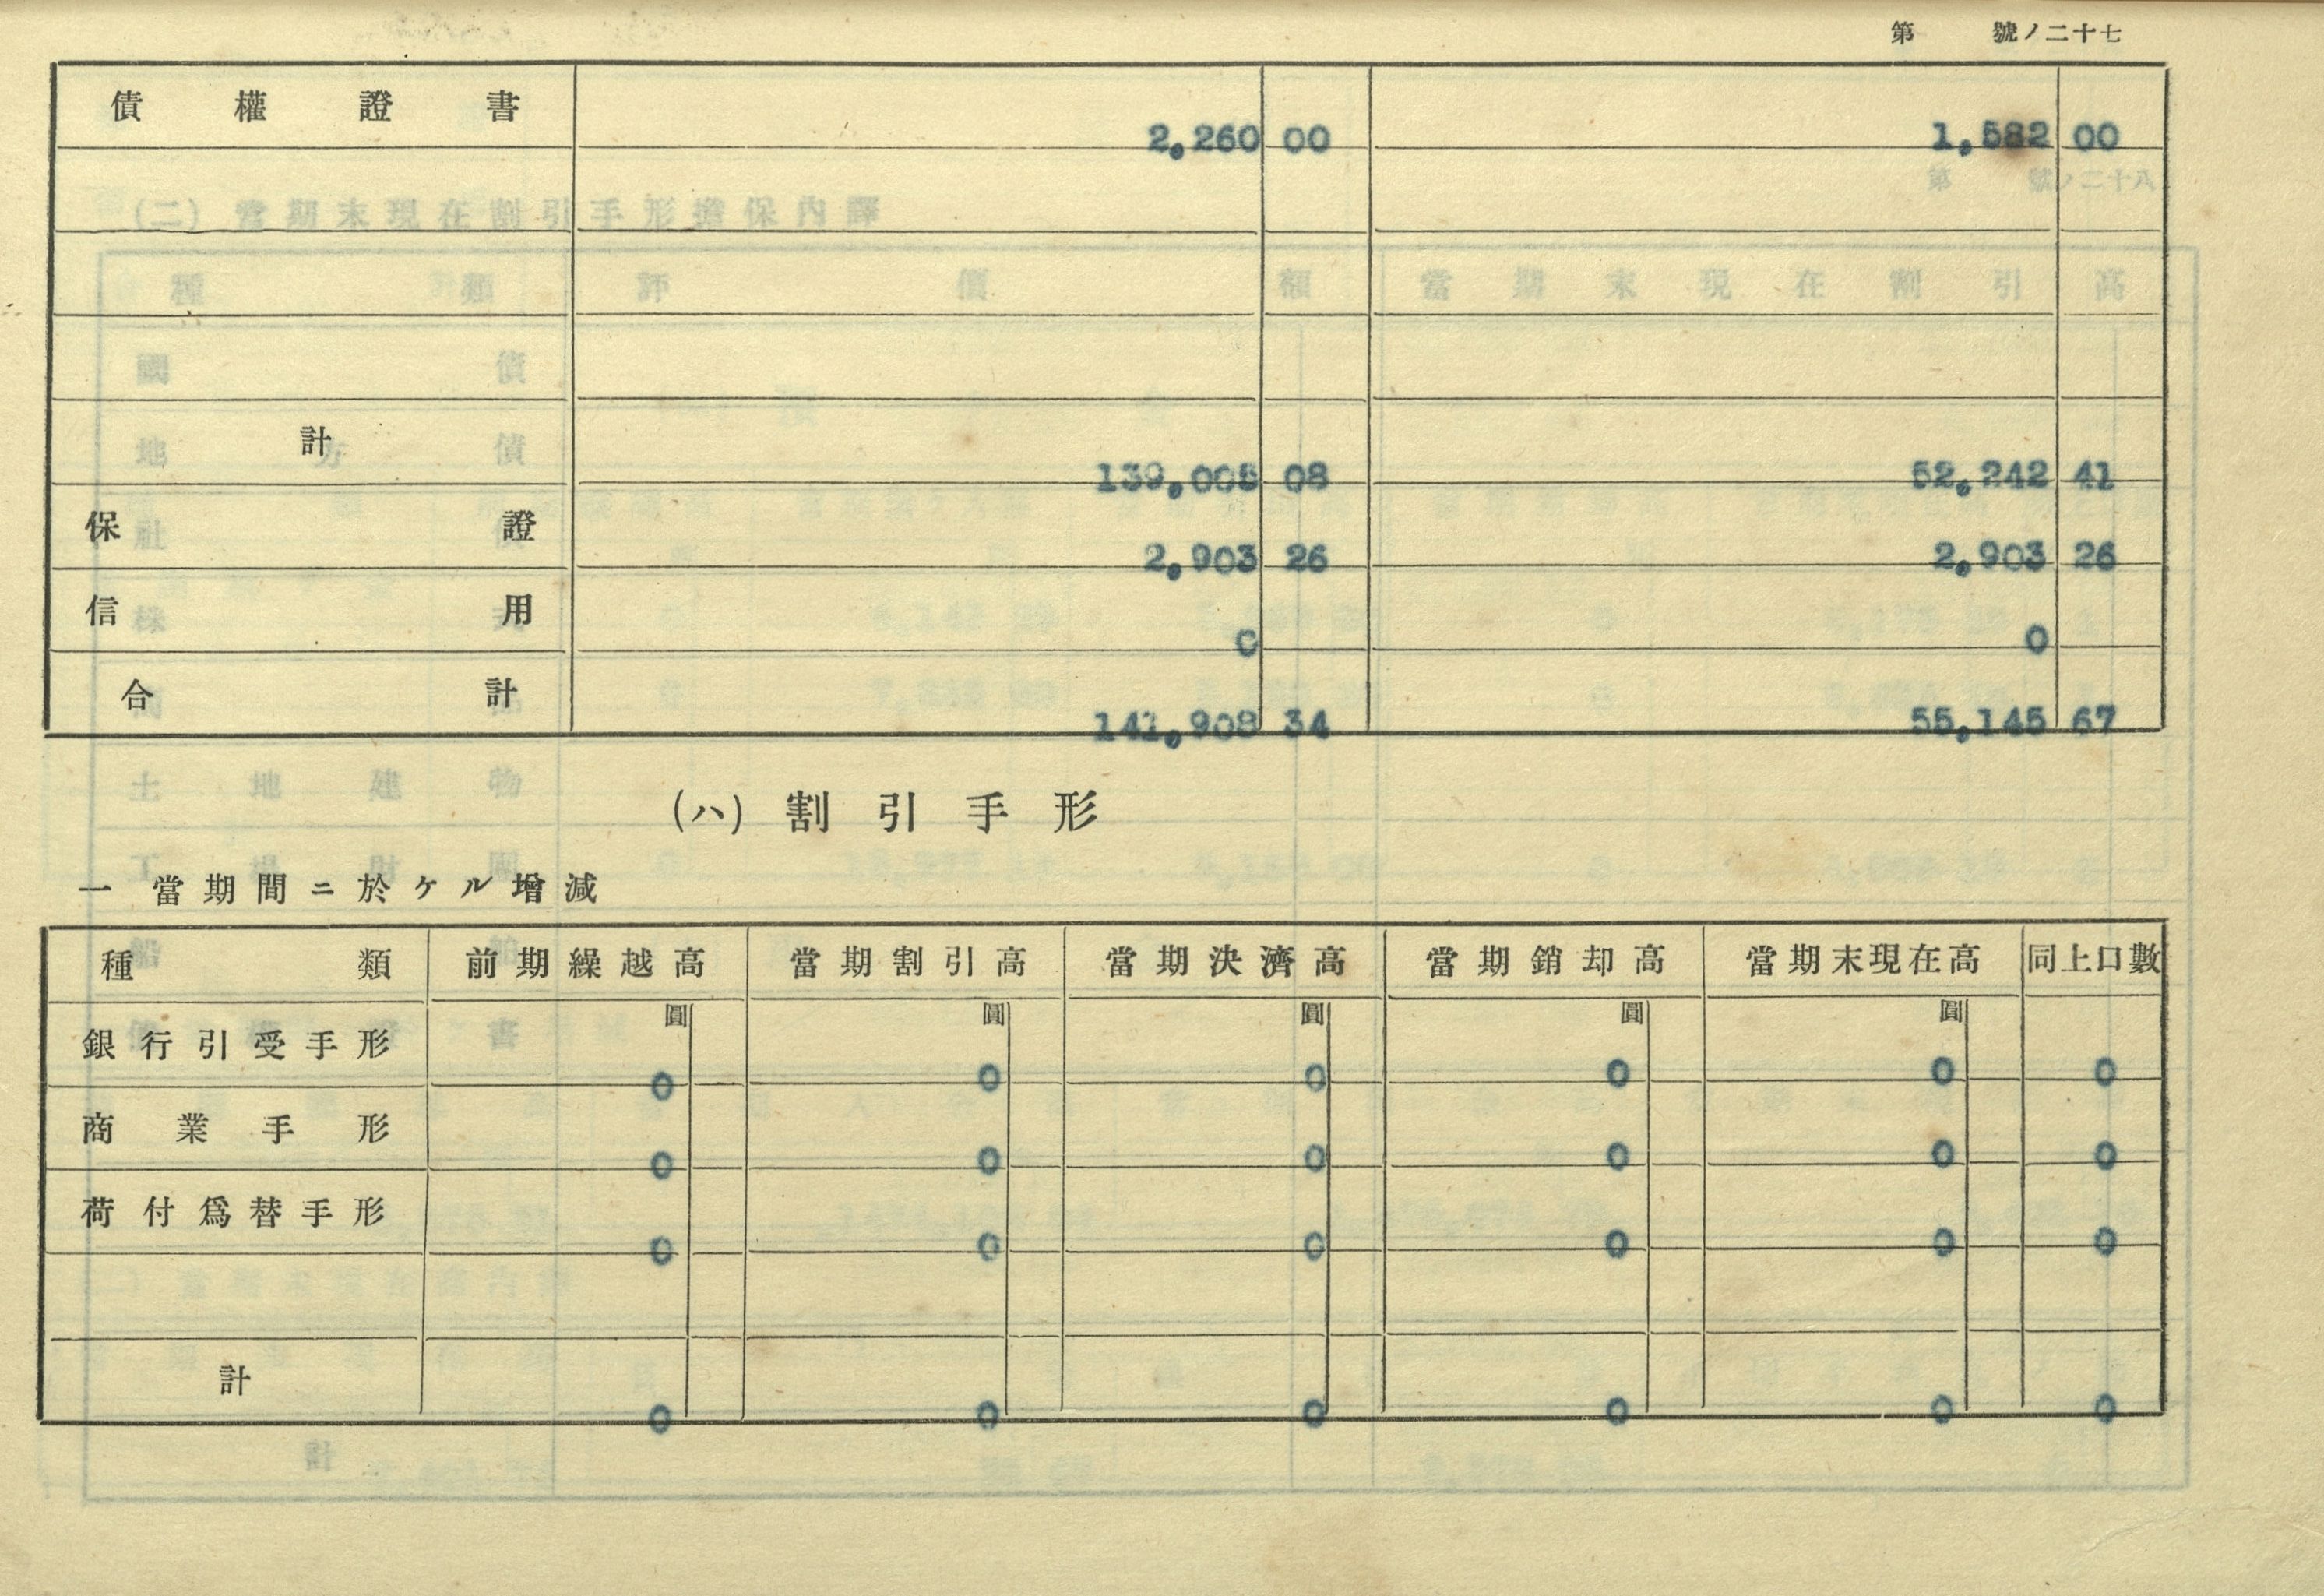 第 號ノ二十七
債權證書 2,260 00 1,582 00
計 139,005 08 52,242 41
保證 2,903 26 2,903 26
信用 0 0
合計 141,908 34 55,145 67
(ハ)割引手形
一 當期間ニ於ケル增減
種類 前期繰越高 當期割引高 當期決濟高 當期銷却高 當期末現在高 同上口數
圓 圓 圓 圓 圓
銀行引受手形 0 0 0 0 0 0
商業手形 0 0 0 0 0 0
荷付爲替手形 0 0 0 0 0 0
計 0 0 0 0 0 0